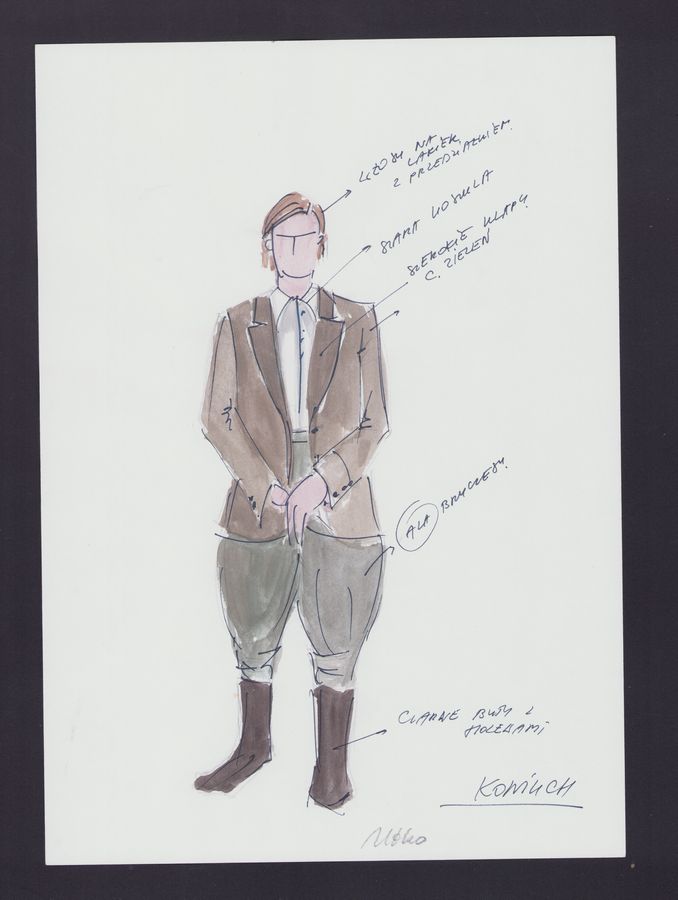 WŁOSY NA
LAKIER,
Z PRZEDZIAŁKIEM.
SZARA KOSZULA
SZEROKIE KLAPY.
C. ZIELEŃ
ALA BRYCZESY.
CZARNE BUTY Z
HOLEWAMI
KONIUCH